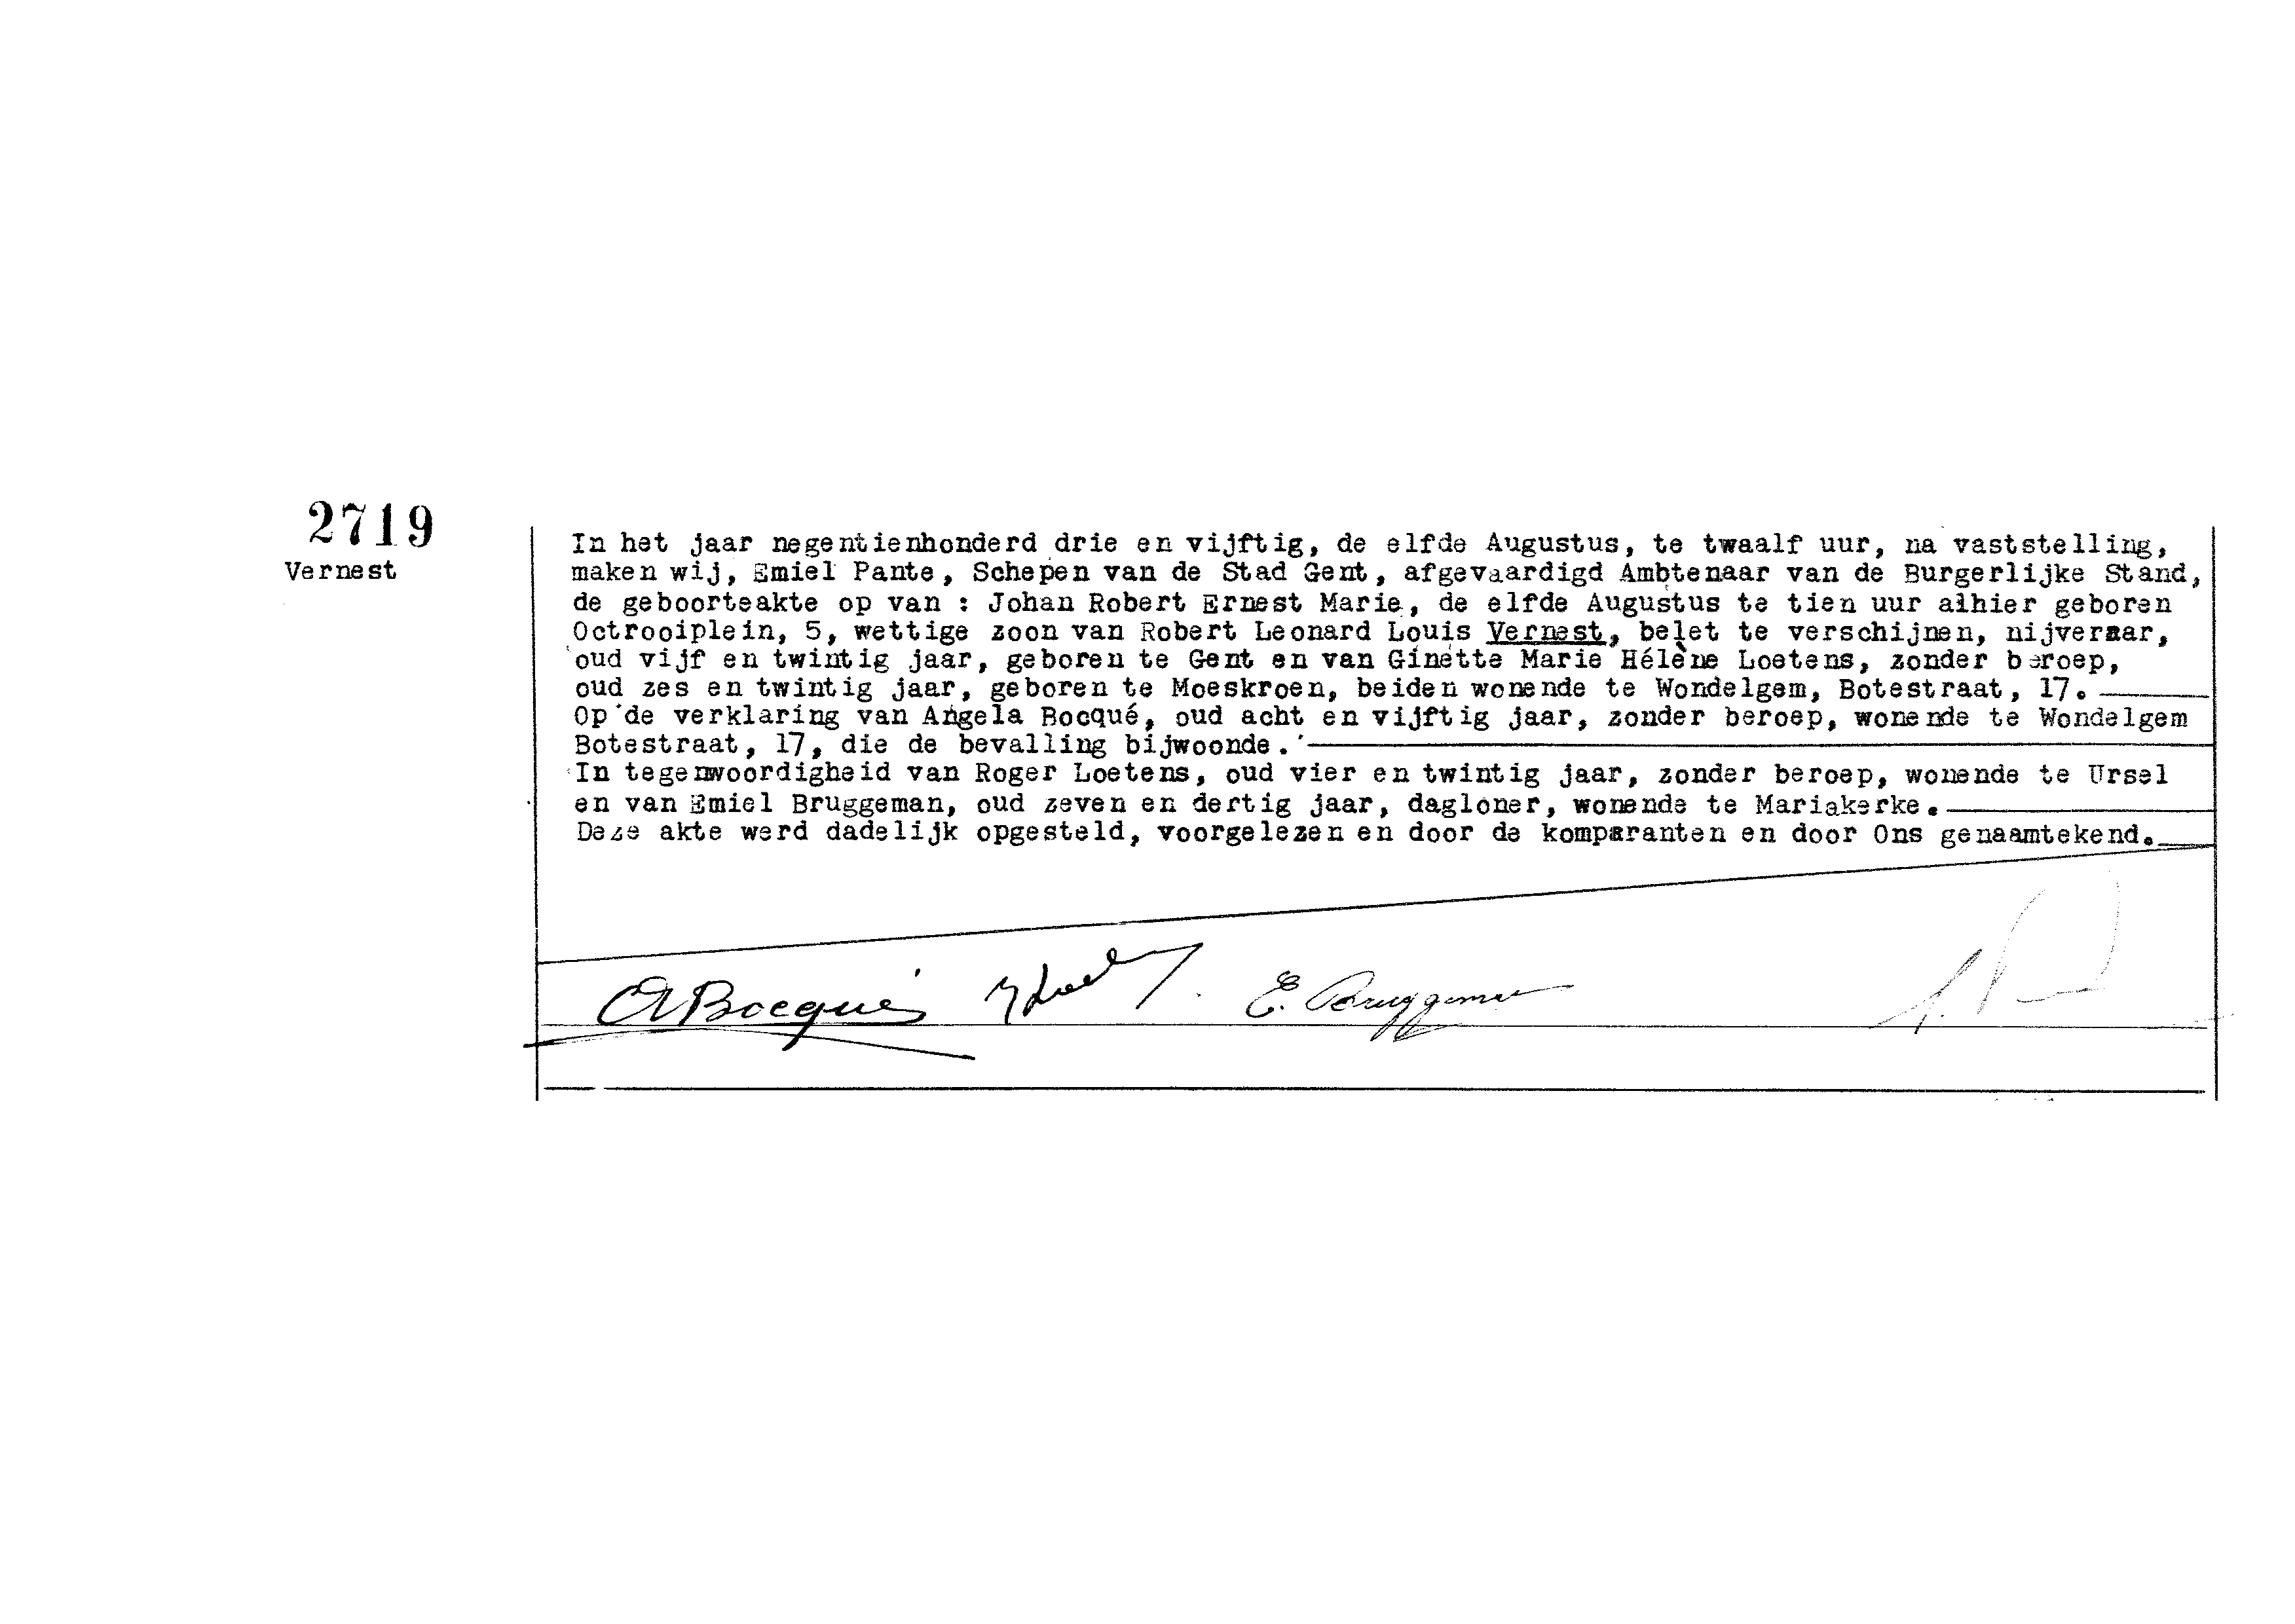 2719
Vernest
In het jaar negentienhonderd drie en vijftig, de elfde Augustus, te twaalf uur, na vaststelling,
maken wij, Emiel Pante, Schepen van de Stad Gent, afgevaardigd Ambtenaar van de Burgerlijke Stand,
de geboorteakte op van : Johan Robert Ernest Marie, de elfde Augustus te tien uur alhier geboren
Octrooiplein, 5, wettige zoon van Robert Leonard Louis Vernest, belet te verschijnen, nijveraar,
oud vijf en twintig jaar, geboren te Gent en van Ginette Marie Hélène Loetens, zonder beroep,
oud zes en twintig jaar, geboren te Moeskroen, beiden wonende te Wondelgem, Botestraat, 17.
Op de verklaring van Angela Bocqué, oud acht en vijftig jaar, zonder beroep, wonende te Wondelgem
Botestraat, 17, die de bevalling bijwoonde.
In tegenwoordigheid van Roger Loetens, oud vier en twintig jaar, zonder beroep, wonende te Ursel
en van Emiel Bruggeman, oud zeven en dertig jaar, dagloner, wonende te Mariakerke.
Deze akte werd dadelijk opgesteld, voorgelezen en door de komparanten en door Ons genaamtekend.
A Bocqué E. Bruggeman